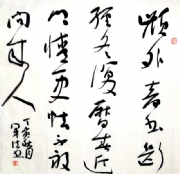 嶺外音书断
经冬復曆春近
乡情更怯不敢
問来人
丁亥